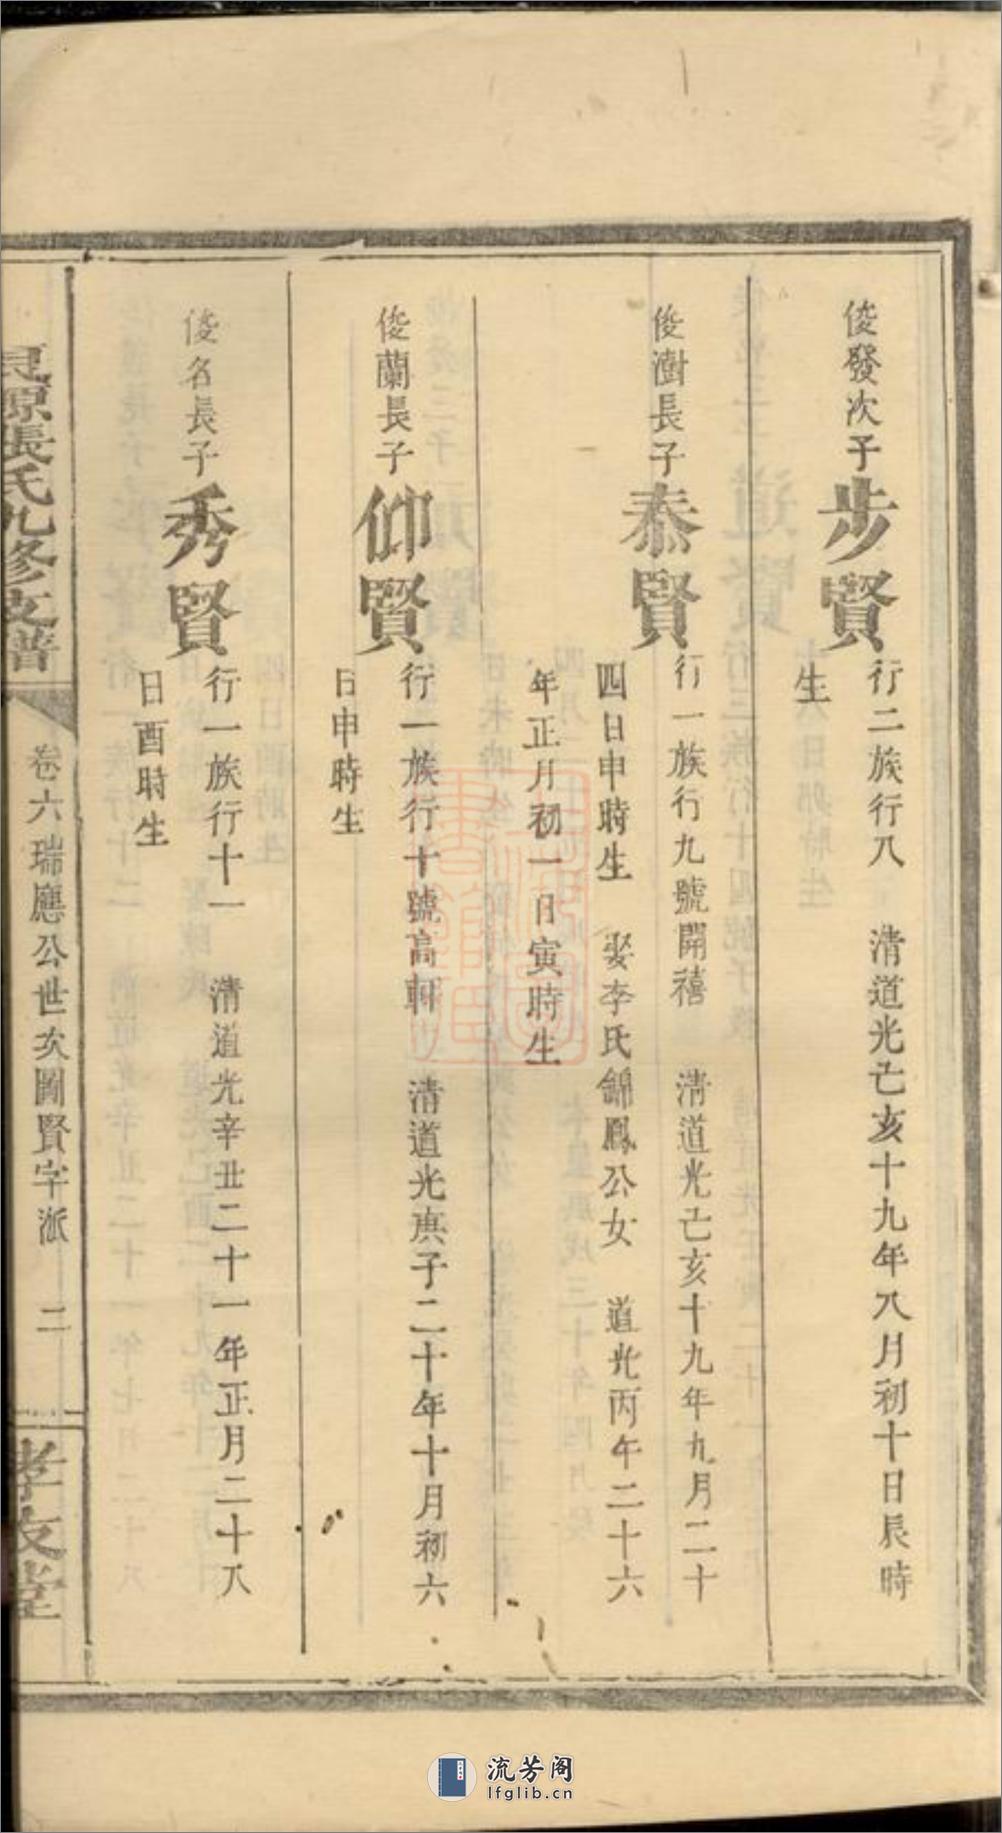 俊發次子步賢行二族行八 清道光己亥十九年八月初十日辰時
生
俊澍長子泰賢行一族行九號開禧 清道光己亥十九年九月二十
四日申時生 娶李氏錦鳳公女 道光丙午二十六
年正月初一日寅時生
俊蘭長子仰賢行一族行十號高軒 清道光庚子二十年十月初六
日申時生
俊名長子秀賢行一族行十一 清道光辛丑二十一年正月二十八
日酉時生
源張氏九修支譜
卷六瑞應公世次圖賢字派 二
孝友堂
流芳阁
lfglib.cn